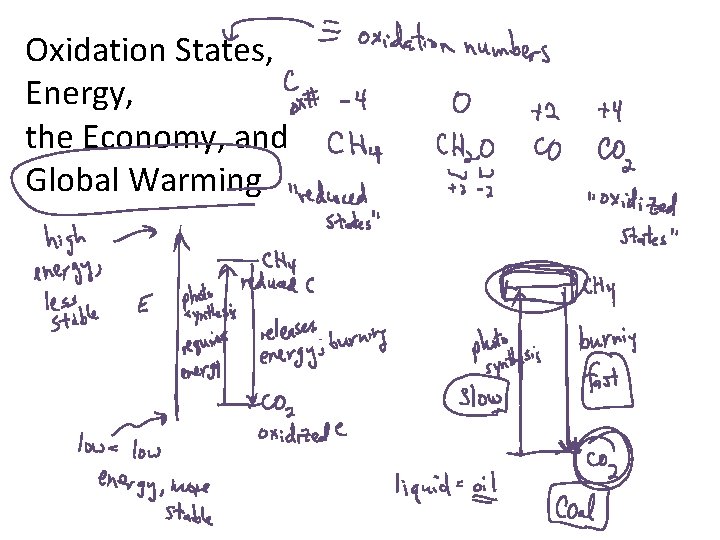 Oxidation States,
Energy,
the Economy, and
Global Warming
≡ oxidation numbers
C
ox# -4 O +2 +4
CH4 CH2O CO CO2
+2 -2
"reduced
states"
"oxidized
states"
high
energy,
less
stable
E
photo
synthesis
requires
energy
CH4
reduced C
releases
energy; burning
CO2
oxidized C
low = low
energy, more
stable
CH4
photo
synthesis
slow
burning
fast
CO2
liquid = oil
Coal